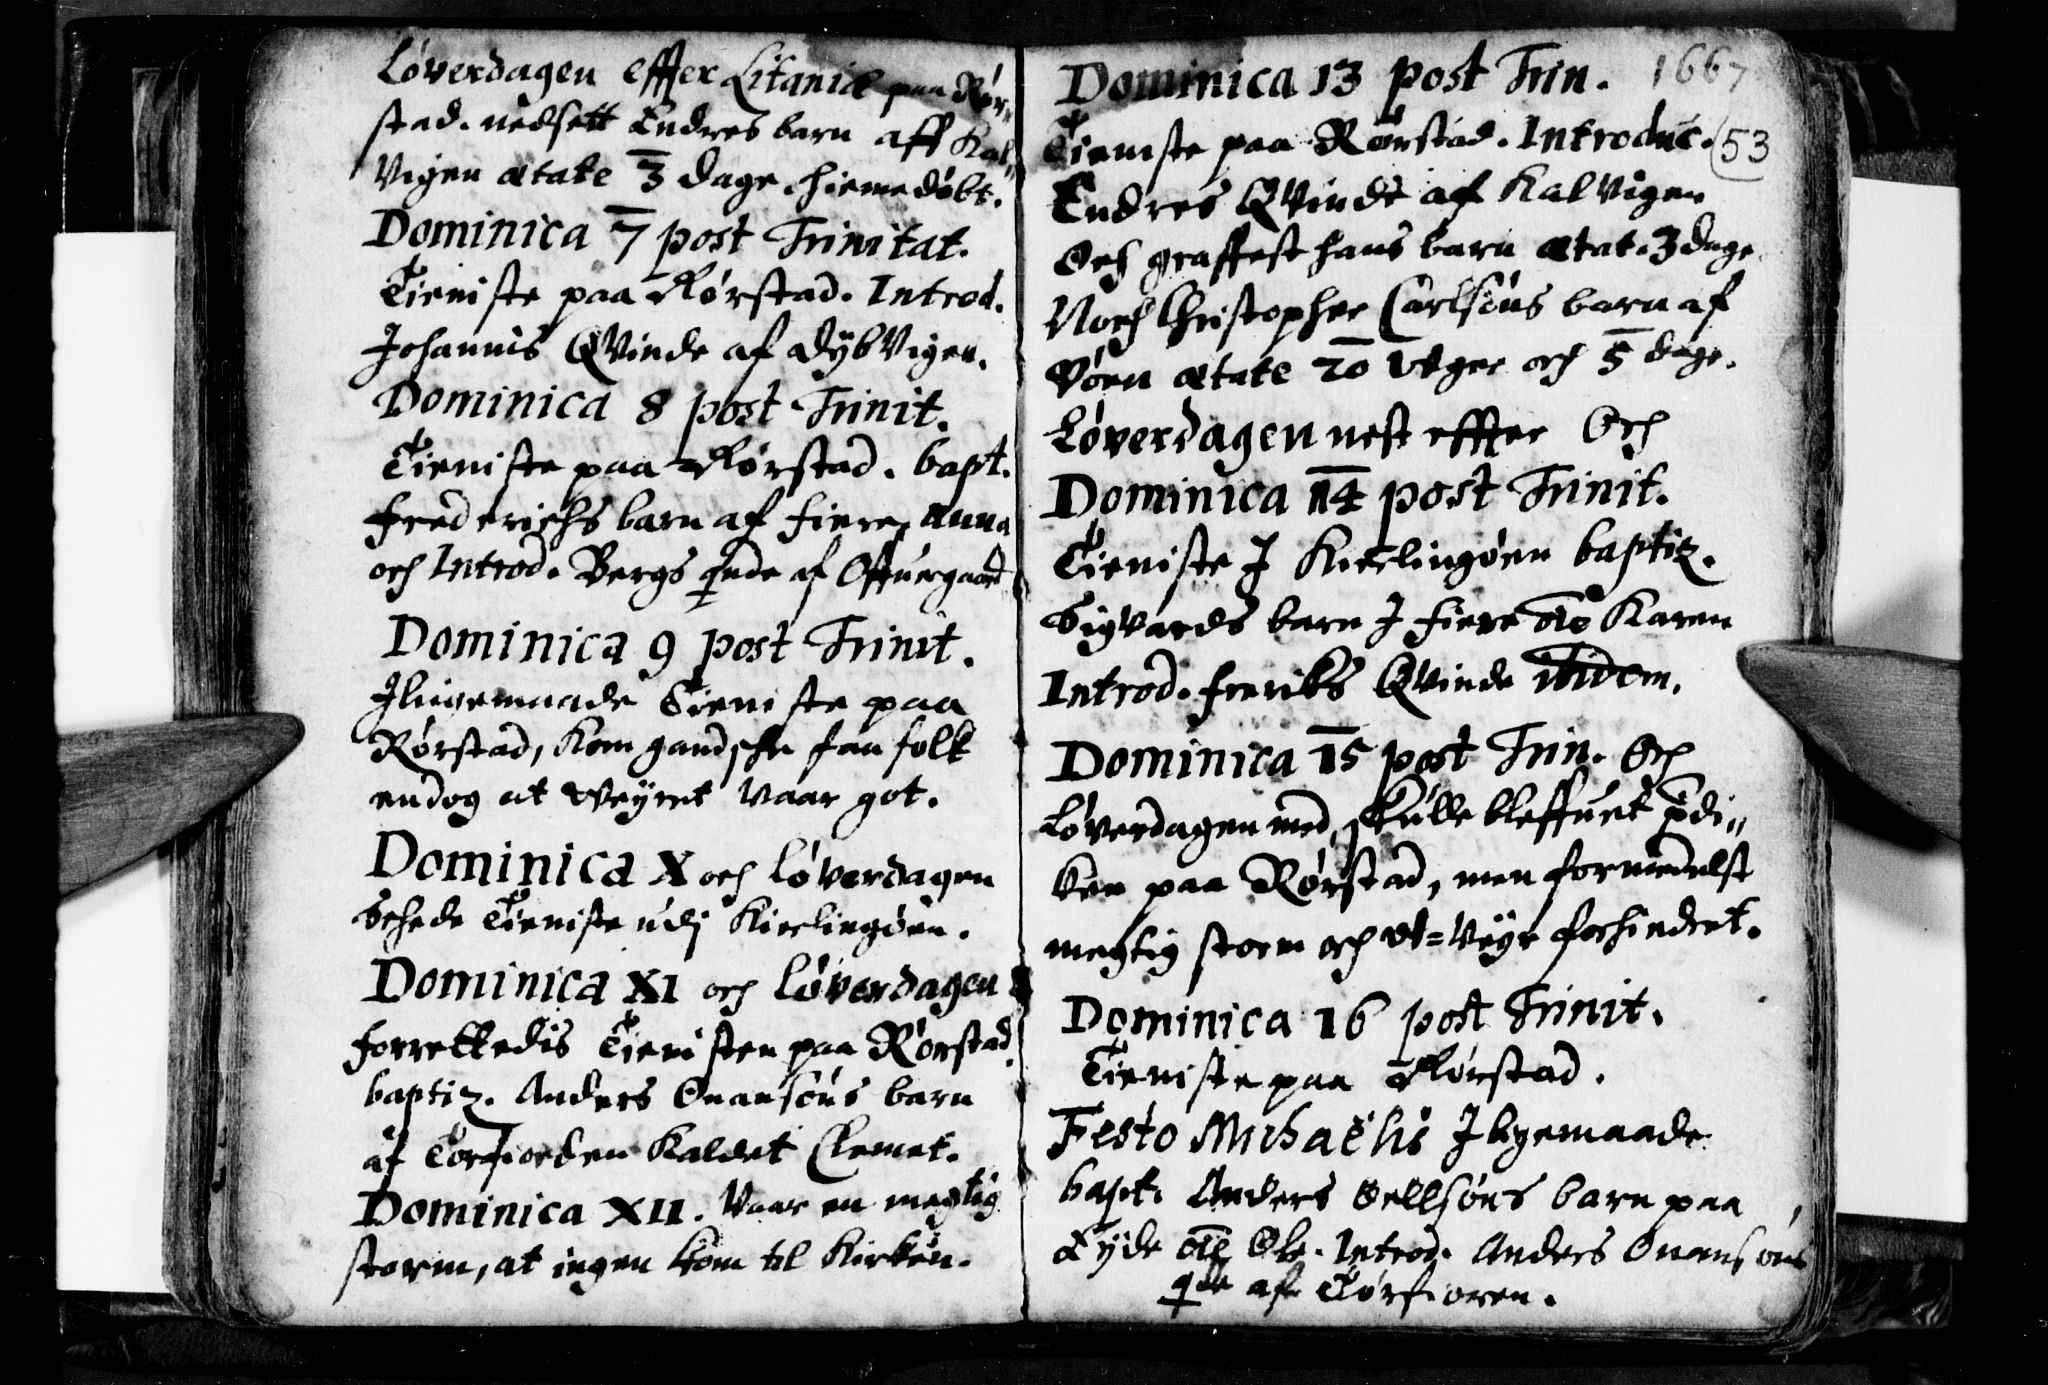 Løverdagen effter Litaniæ paa Rør-
stad. nedsett Endres barn aff Kal-
Vigen ætate 3 dage, hiemedøbt.
Dominica 7 post Trinitat.
Tieniste paa Rørstad. Introd.
Johannis QVinde af dybVigen.
Dominica 8 post Trinit.
Tieniste paa Rørstad. bapt.
frederichs barn af fiere, Anna
och Introd. Bergs qinde af Offuergaard
Dominica 9 post Trinit.
Jligemaade Tieniste paa
Rørstad, Kom gandsche faa folk
endog at Veyret Vaar got.
Dominica X och løverdagen
Schede Tieniste udj Kierlingøen.
Dominica XI och løverdagen
forrettedis Tienisten paa Rørstad
baptiz. Anders Onansøns barn
af Torfiorden Kaldet Clemet.
Dominica XII. Vaar en megtig
storm, at ingen kom til Kirken.
Dominica 13 post Trin. 1667
Tieniste paa Rørstad. Introduc. 53
Endres QVinde af KalVigen
Och graffest hans barn ætat. 3 dage
Noch Christopher Carlsøns barn af
Vøen ætate 20 Uger och 5 dage.
Løverdagen nest effter Och
Dominica 14 post Trinit.
Tieniste J Kierlingøen baptiz.
Sigvards barn J fiere no͞ie Karen
Introd. freriks QVinde ibidem.
Dominica 15 post Trin. Och
Løverdagen med, skulle bleffuet p͞di-
ken paa Rørstad, men formedelst
megtig storm och Ut=Veyr forhindret.
Dominica 16 post Trinit.
Tieniste paa Rørstad.
Festo Michaëlis Jligemaade
bapt. Anders Oellsøns barn paa
no͞ie Ole. Introd. Anders Onansøns
qde af Tørfioren.